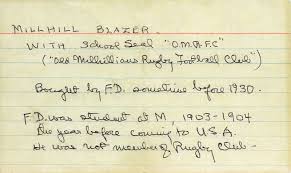 MILLHILL BLAZER
WITH School Seal "O.M.R.F.C"
("Old Millhillians Rugby Football Club")
Bought by F.D. sometime before 1930.
F.D. was student at M, 1903-1904
the year before coming to USA.
He was not member of Rugby Club -